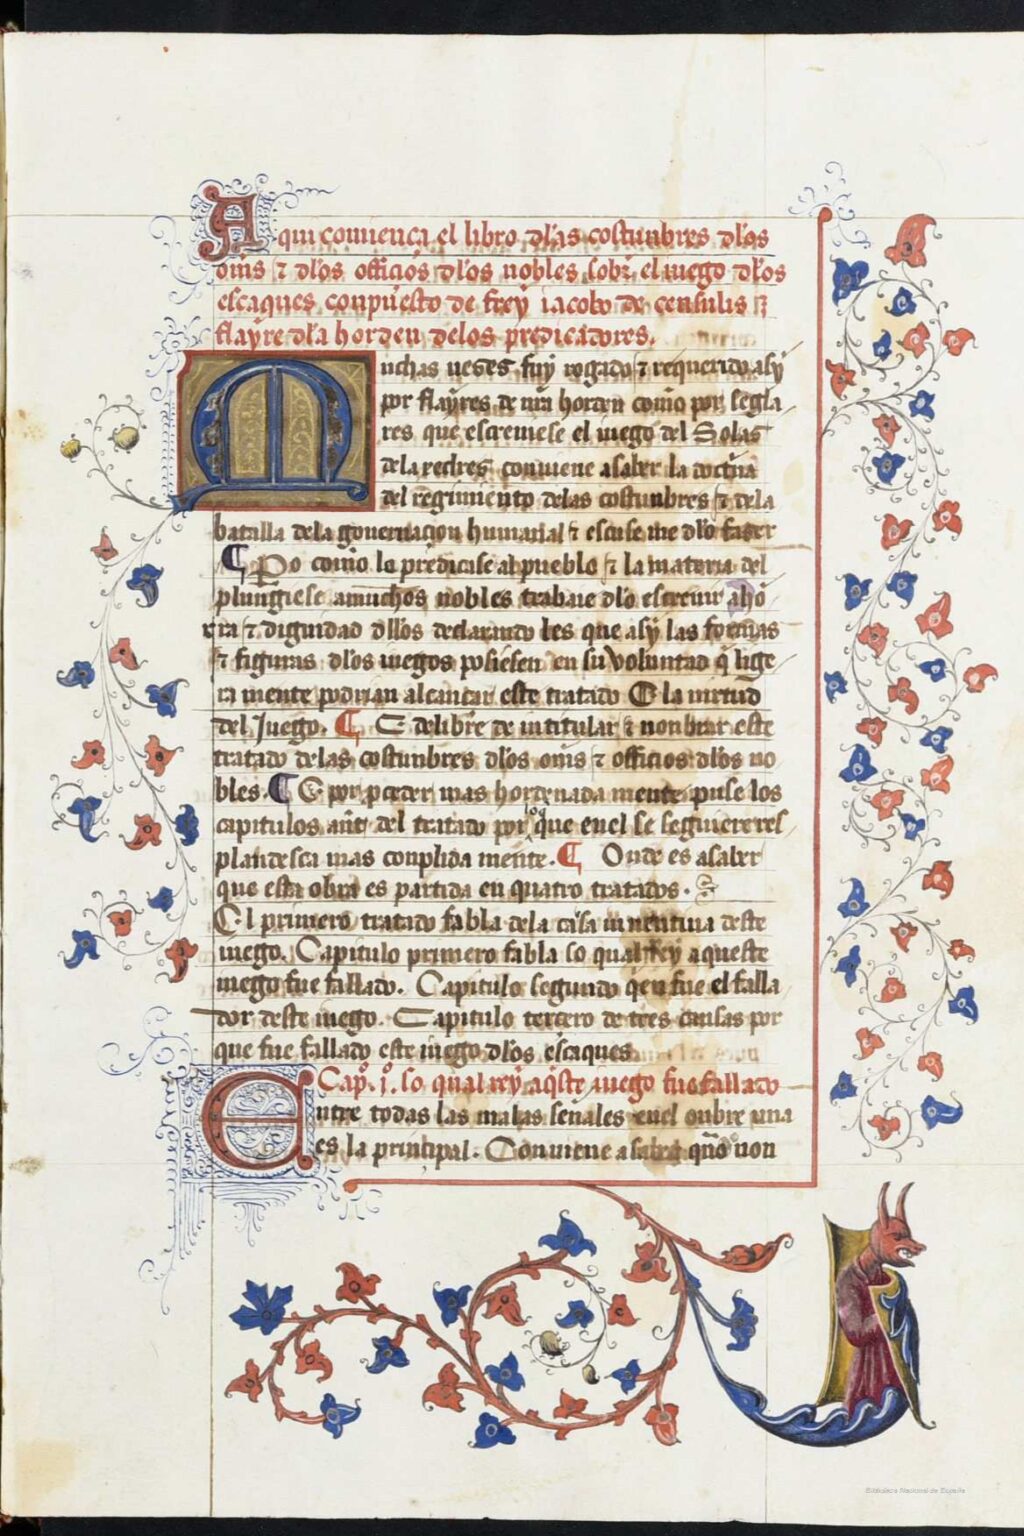 Aqui comiença el libro dlas costunbres dlos
oms ⁊ dlos officios dlos nobles sobr el iuego dlos
escaques conpuesto de frey iacobo de censulis
flayre dla horden delos predicadores.
Muchas ueses fuy rogado ⁊ requerido asy
por flayres de nra horden como por segla
res que escreuiese el iuego del Solas
del axedres conuiene asaber la doctina
del regimiento delas costunbres ⁊ dela
batalla dela gouernaçion humanal ⁊ escuse me dlo faser
¶ Po como lo predicase al pueblo ⁊ la materia del
plungiese amuchos nobles trabaie dlo escreuir aho
rra ⁊ dignidad dllos declarando les que asy las formas
⁊ figuras dlos iuegos posiesen en su voluntad q lige
ra mente podrian alcançar este tratado E la uirtud
del Juego. ¶ E delibre de intitular ⁊ nonbrar este
tratado delas costunbres dlos oms ⁊ officios dlos no
bles. ¶ E por pceder mas hordenada mente puse los
capitulos ant del tratado por que enel se seguiere res
plandesca mas conplida mente. ¶ Onde es asaber
que esta obra es partida en quatro tratados.
El primero tratado fabla dela casa inuentiua deste
iuego. Capitulo primero fabla so qual rey aqueste
iuego fue fallado. Capitulo segundo qen fue el falla
dor deste iuego. Capitulo terçero de tres causas por
que fue fallado este iuego dlos escaques
Cap. j. so qual rey aqste iuego fue fallado
Entre todas las malas señales enel onbre una
es la prinçipal. Conuiene asaber qño non
Biblioteca Nacional de España